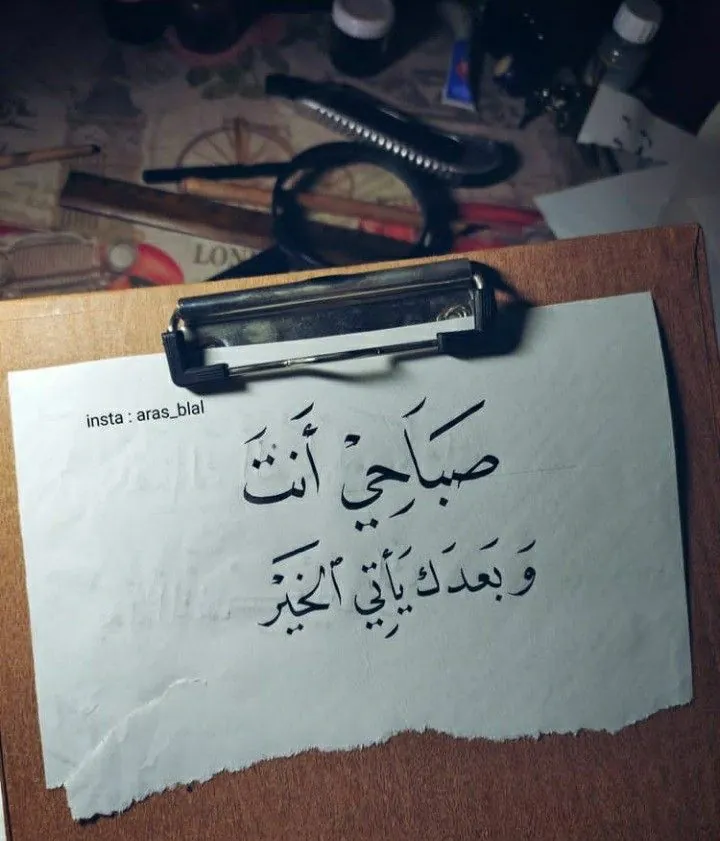 LON
insta : aras_blal
صَبَاحِيْ أَنتَ
وَ بَعَدَك يَأتِي ٱلخَيْر